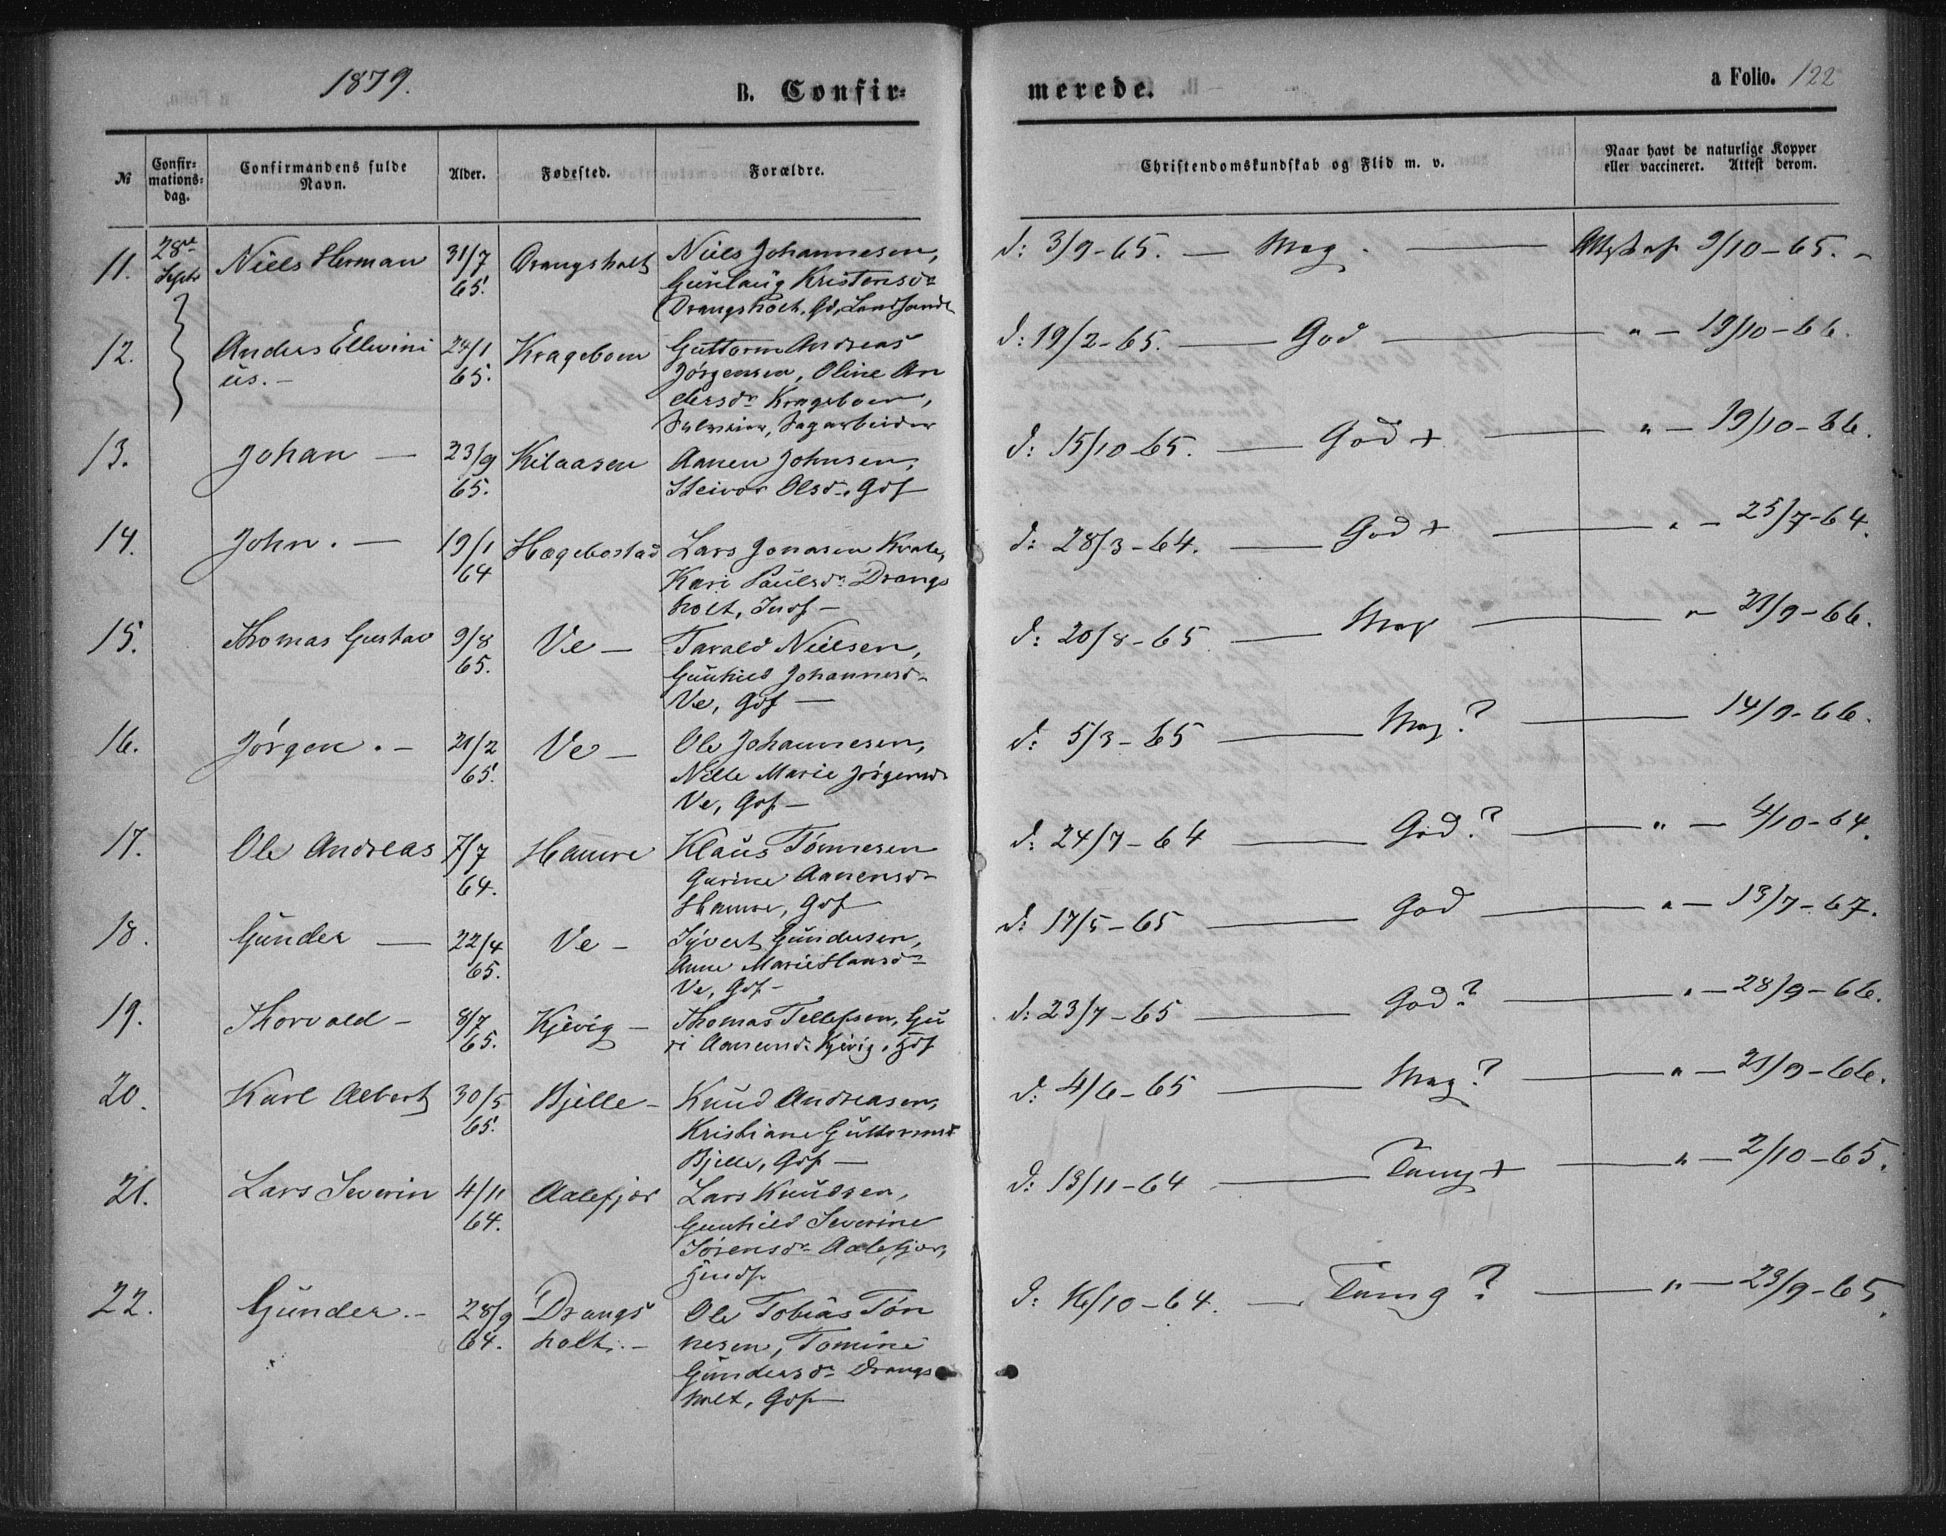 1879.
B. Confir-
merede.
a Folio. 122
№
Confir-
mations-
dag.
Confirmandens fulde
Navn.
Alder.
Fødested.
Forældre.
Christendomskundskab og Flid m. v.
Naar havt de naturlige Kopper
eller vaccineret. Attest derom.
11. 28de Septr Niels Herman 31/7 65. Drangsholt Niels Johannesen,
Gunlaug Kristensdr
Drangsholt, Gd,
d: 3/9-65. — Mag. — Attest af 9/10-65. -
12. Anders Ellevini
us. - 24/1 65. Krageboen Guttorm Andreas
Jørgensen, Oline An
dersdr Krageboen,
Sagarbeider
d: 19/2-65. — God — " - 19/10-66.
13. Johan — 23/9 65. Kilaasen Aanen Johnsen,
Steivor Olsd., Gdf
d: 15/10-65. — God + — " - 19/10-66.
14. John. — 19/1 64 Hægebostad Lars Jonasen
Kari Paulsdr Drangs
holt, Indf -
d: 28/3-64. — God + — " - 25/7-64.
15. Thomas Gustav 9/8 65. Ve — Tarald Nielsen,
Gunhild Johannesd-
Ve, Gdf —
d: 20/8-65 — Mag — " 21/9-66.
16. Jørgen. - 21/2 65. Ve — Ole Johannesen,
Nille Marie Jørgensd-
Ve, Gdf —
d: 5/3-65 — Mag? — 14/9-66.
17. Ole Andreas 7/7 64. Hamre Klaus Tønnesen
Gurine Aanensd-
Hamre, Gdf
d: 24/7-64 — God? — " - 4/10-64.
18. Gunder — 22/4 65. Ve - Syvert Gundersen,
Anne Marie Hansd-
Ve, Gdf -
d: 17/5-65 — God — " - 13/7-67.
19. Thorvald - 8/7 65. Kjevig — Thomas Tellefsen, Gu
ri Aanensd. Kjevig, Gdf
d: 23/7-65 — God? — " - 28/9-66.
20. Karl Albert 30/5 65. Bjelle - Knud Andreasen,
Kristiane Guttormsd
Bjelle, Gdf —
d: 4/6-65 — Mag? — " - 21/9-66.
21. Lars Severin 4/11 64. Aalefjær Lars Knudsen,
Gunhild Severine
Sørensdr Aalefjær,
d: 13/11-64 — Tamg + — " - 2/10-65.
22. Gunder. - 28/9 64. Drangs
holt. - Ole Tobias Tøn
nesen, Tomine
Gundersdr Drangs
holt, Gdf —
d: 16/10-64. — Tamg? — " - 23/9-65.